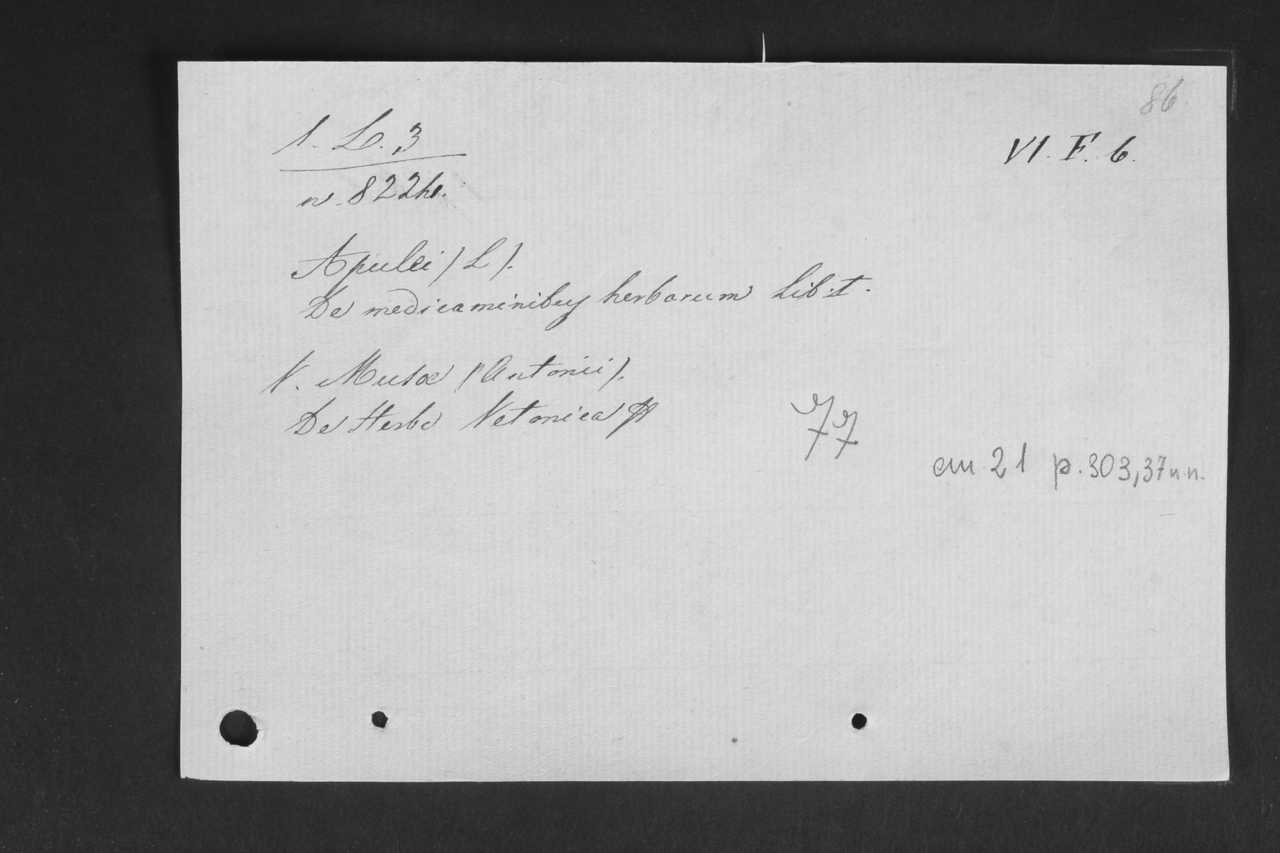 86
1. L. 3
VI. F. 6.
n. 8224.
Apulei (L).
De medicaminibus herbarum Lib: I.
V. Musae (Antonii).
De Herba Vetonica
77
cm 21 p. 303, 37 n.n.